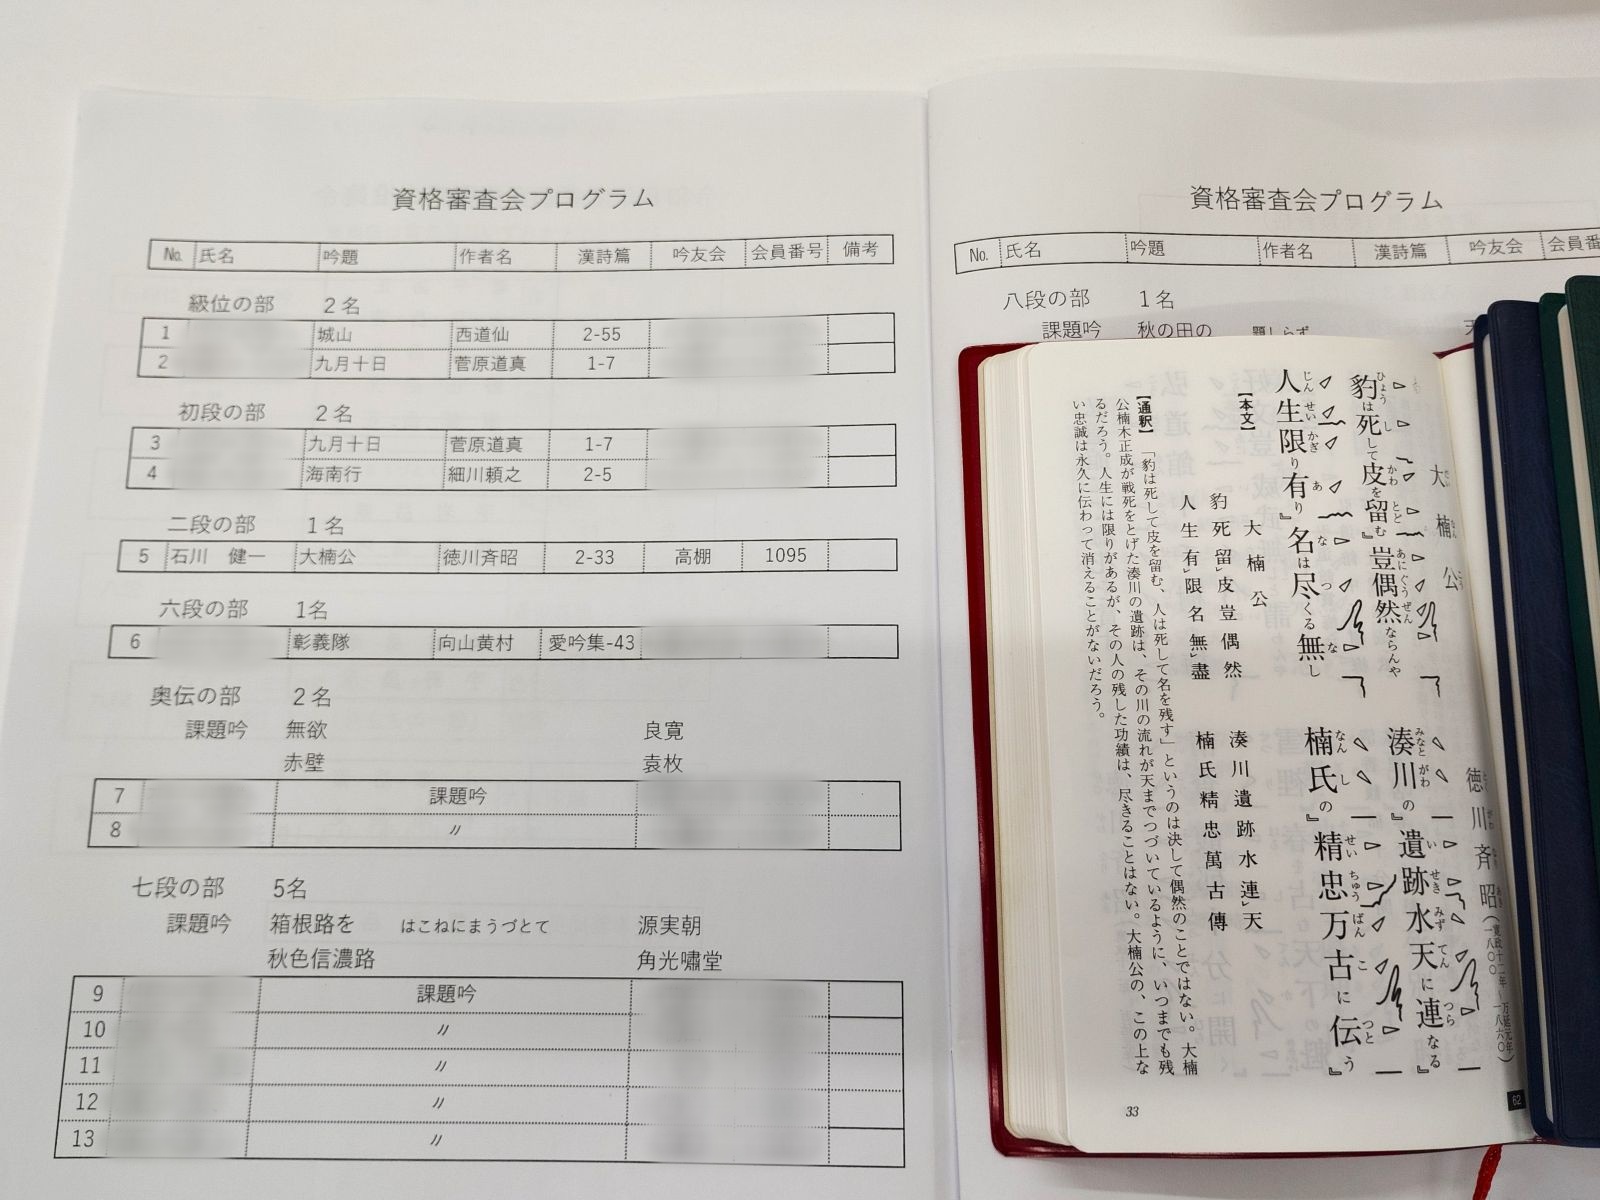 資格審査会プログラム
No. 氏名 吟題 作者名 漢詩篇 吟友会 会員番号 備考
級位の部 2名
1 城山 西道仙 2-55
2 九月十日 菅原道真 1-7
初段の部 2名
3 九月十日 菅原道真 1-7
4 海南行 細川頼之 2-5
二段の部 1名
5 石川 健一 大楠公 徳川斉昭 2-33 高棚 1095
六段の部 1名
6 彰義隊 向山黄村 愛吟集-43
奥伝の部 2名
課題吟 無欲 良寛
赤壁 袁枚
7 課題吟
8 〃
七段の部 5名
課題吟 箱根路を はこねにまうづとて 源実朝
秋色信濃路 角光嘯堂
9 課題吟
10 〃
11 〃
12 〃
13 〃
資格審査会プログラム
No. 氏名 吟題 作者名 漢詩篇 吟友会 会員番
八段の部 1名
課題吟 秋の田の 題しらず 天
大楠公 徳川斉昭(寛政十二年~万延元年 一八〇〇~一八六〇)
豹は死して皮を留む』豈偶然ならんや 湊川の』遺跡水天に連なる』
人生限り有り』名は尽くる無し 楠氏の』精忠万古に伝う』
【本文】
大楠公
豹死留レ皮豈偶然 湊川遺跡水連レ天
人生有レ限名無レ盡 楠氏精忠萬古傳
【通釈】「豹は死して皮を留む、人は死して名を残す」というのは決して偶然のことではない。大楠
公楠木正成が戦死をとげた湊川の遺跡は、その川の流れが天までつづいているように、いつまでも残
るだろう。人生には限りがあるが、その人の残した功績は、尽きることはない。大楠公の、この上な
い忠誠は永久に伝わって消えることがないだろう。
33
62